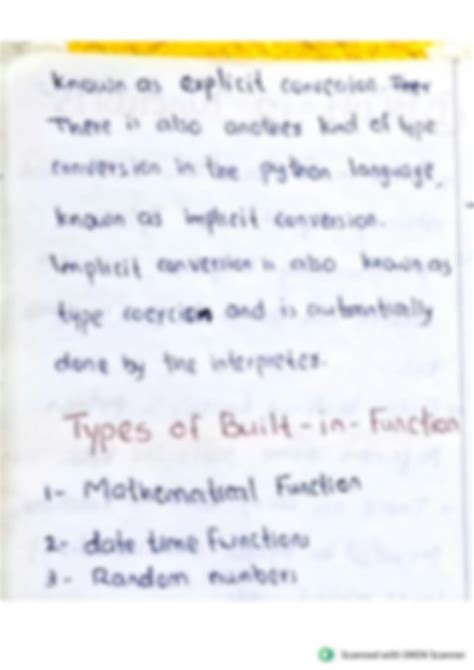 known as explicit conversion. Ther
There is also another kind of type
conversion in the python language,
known as implicit conversion.
Implicit conversion is also known as
type coercion and is automatically
done by the interpreter.
Types of Built-in-Function
1- Mathematical Function
2- date time functions
3- Random numbers
Scanned with OKEN Scanner